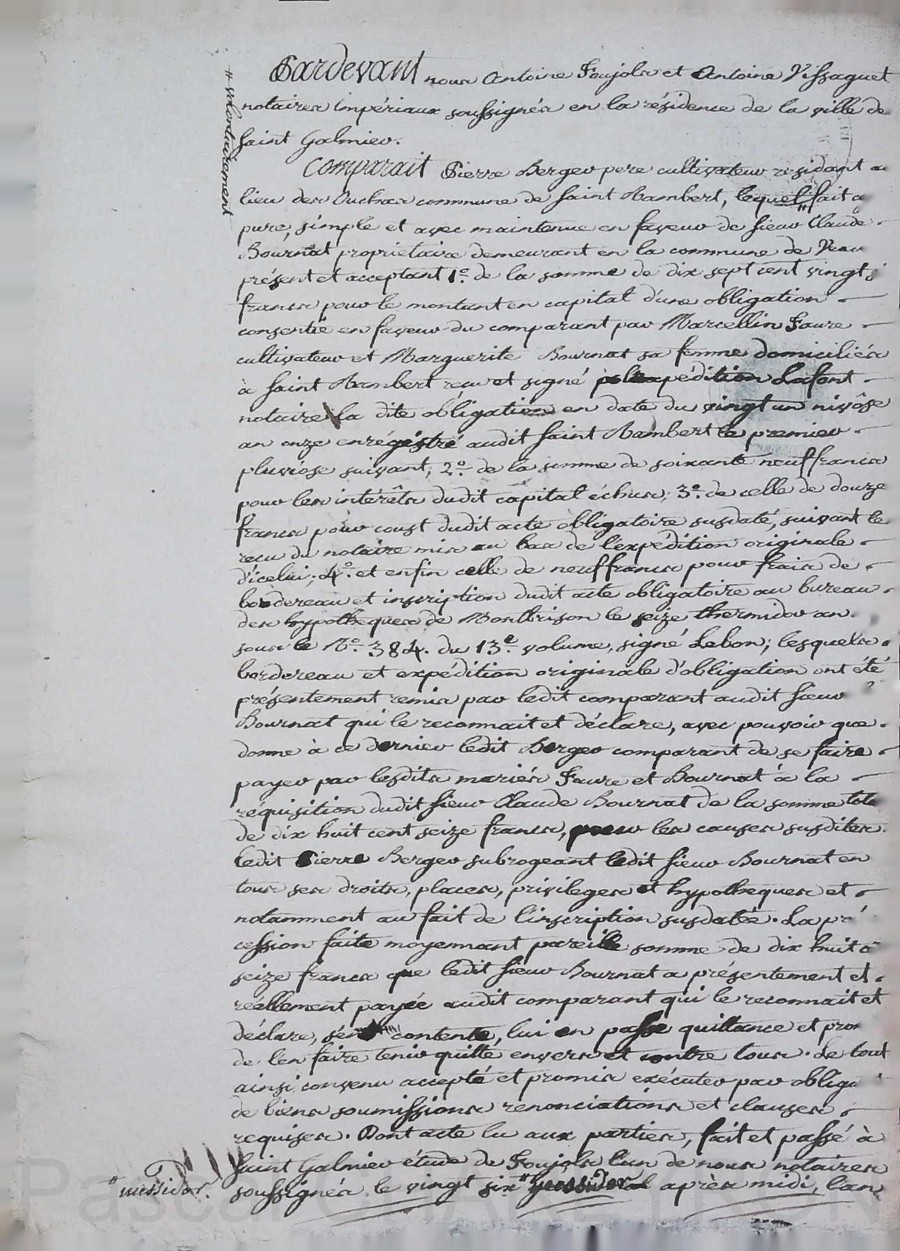 Pardevant nous Antoine Foujols et Antoine Vissaguet
notaires impériaux soussignés en la résidence de la ville de
saint Galmier.
Comparait Pierre Berger pere cultivateur résidant au
lieu des commune de saint Rambert, lequel fait
# volontairement
pure, simple et avec maintenue en faveur de sieur Claude
Bournat propriétaire demeurant en la commune de
présent et acceptant 1º. de la somme de dix sept cent vingt
francs pour le montant en capital d'une obligation
consentie en faveur du comparant par Marcellin Faure
cultivateur et Marguerite Bournat sa femme domiciliés
à saint Rambert reçu et signé à l'expédition Lafont
notaire la dite obligation en date du vingt un nivôse
an onze enrégistré audit saint Rambert le premier
pluviose suivant, 2º. de la somme de soixante neuf francs
pour les intérêts dudit capital échus; 3º. de celle de douze
francs pour coust dudit acte obligatoire susdaté, suivant le
reçu du notaire mis au bas de l'expédition originale
d'icelui; 4º. et enfin celle de neuf francs pour frais de
bordereau et inscription dudit acte obligatoire au bureau
des hypotheques de Montbrison le seize thermidor an
sous le Nº. 384. du 13e. volume, signé Lebon; lesquels
bordereau et expédition originale d'obligation ont été
présentement remis par ledit comparant audit sieur
Bournat qui le reconnait et déclare, avec pouvoir que
donne à ce dernier ledit Berger comparant de se faire
payer par lesdits mariés Faure et Bournat à la
réquisition dudit sieur Claude Bournat de la somme
de dix huit cent seize francs, pour les causes susdites.
ledit Pierre Berger subrogeant ledit sieur Bournat en
tous ses droits, places, privileges et hypotheques et
notamment au fait de l'inscription susdatée. La
cession faite moyennant pareille somme de dix huit
seize francs que ledit sieur Bournat a présentement et
réellement payée audit comparant qui le reconnait et
déclare, s'en contente, lui en passe quittance et
de l'en faire tenir quitte envers et contre tous. Le tout
ainsi convenu accepté et promis exécuter par
de biens soumissions renonciations et clauses
requises. Dont acte lu aux parties, fait et passé à
saint Galmier étude de Foujols l'un de nous notaires
soussignés le vingt six après midi, l'an
messidor.
Pascal CHARETRON